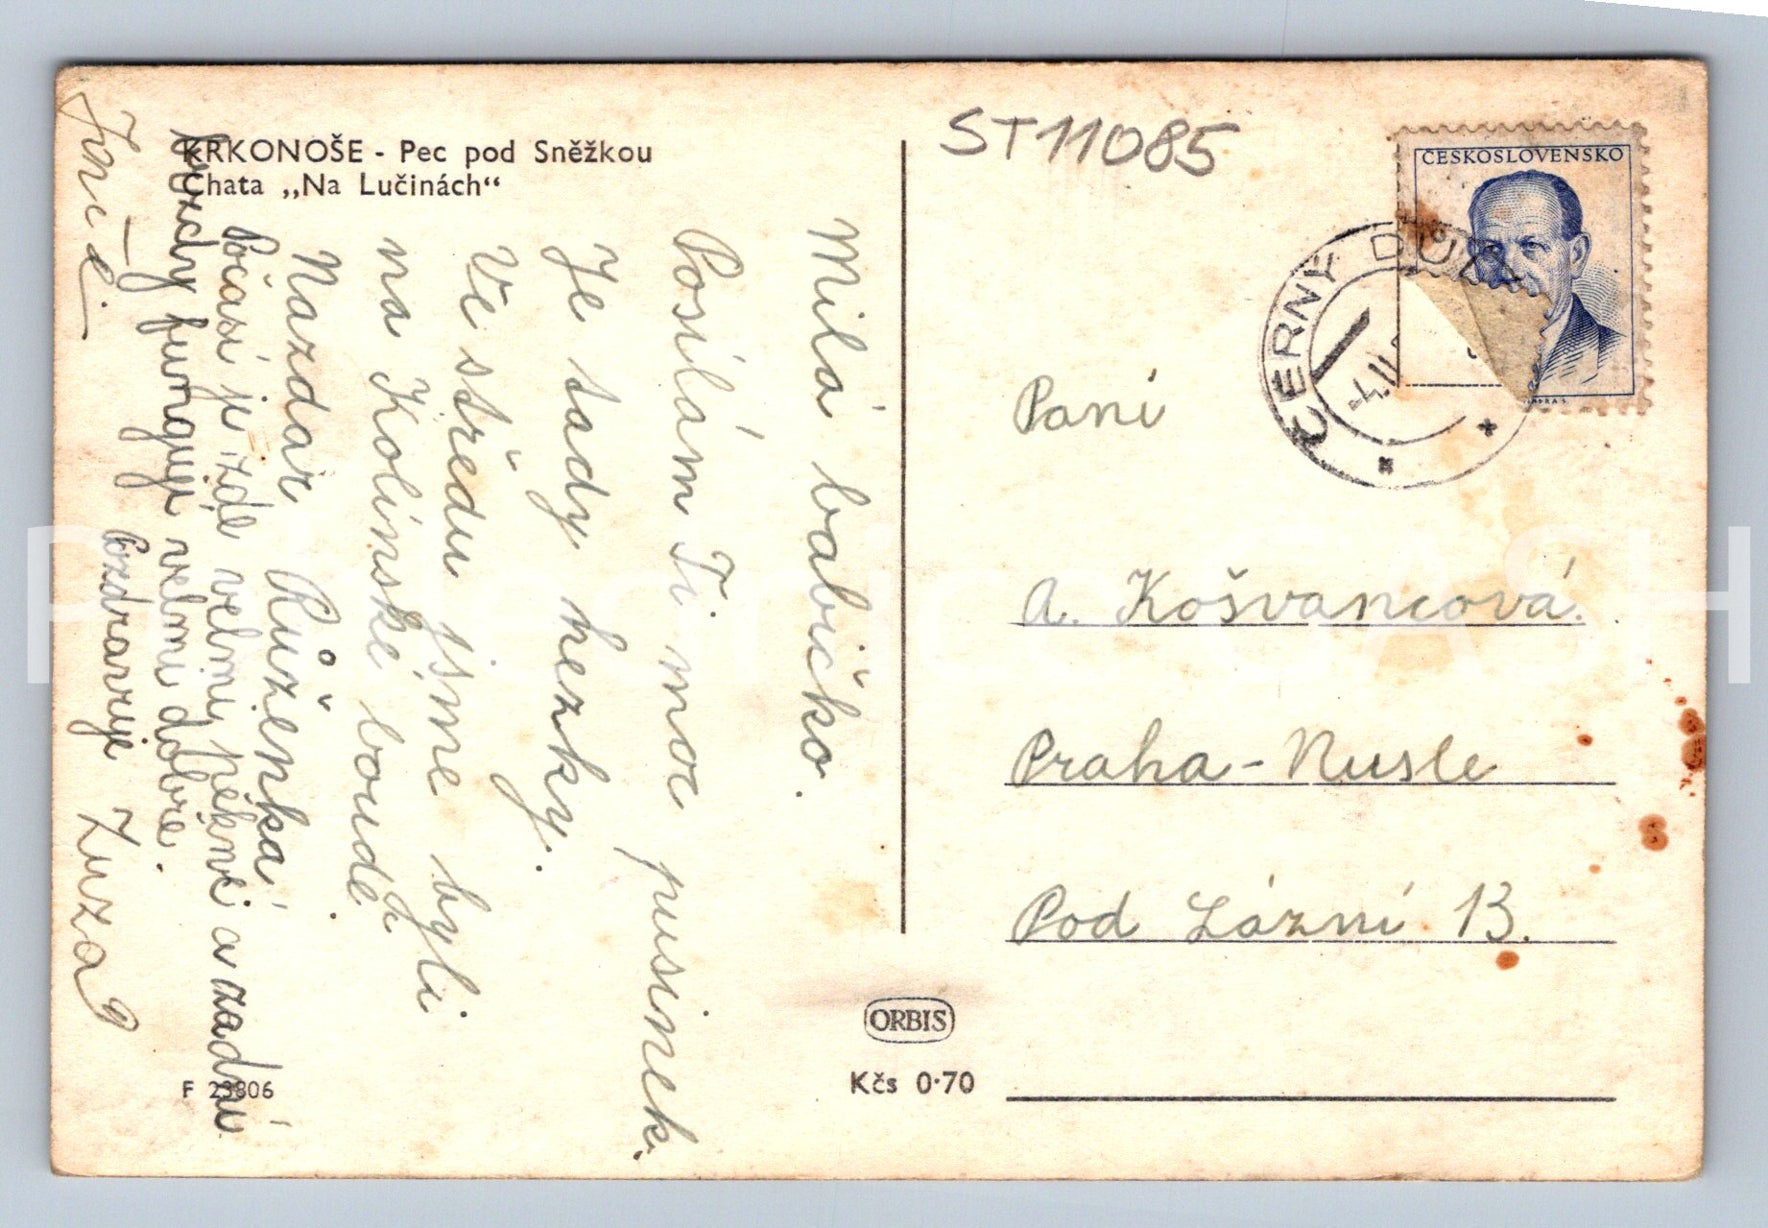 KRKONOŠE - Pec pod Sněžkou
Chata „Na Lučinách“
Milá babičko.
Posílám Ti moc pusinek.
Je tady hezky.
Ve středu jsme byli
na Kolínské boudě.
Nazdar Růženka
Počasí je zde velmi pěkné a zadní
brzdy fungují velmi dobře.
Pozdravuje Zuza
ST11085
ČESKOSLOVENSKO
ČERNÝ DŮL
-4.II
Paní
A. Košvancová.
Praha-Nusle
Pod Lázní 13.
ORBIS
Kčs 0·70
F 23806